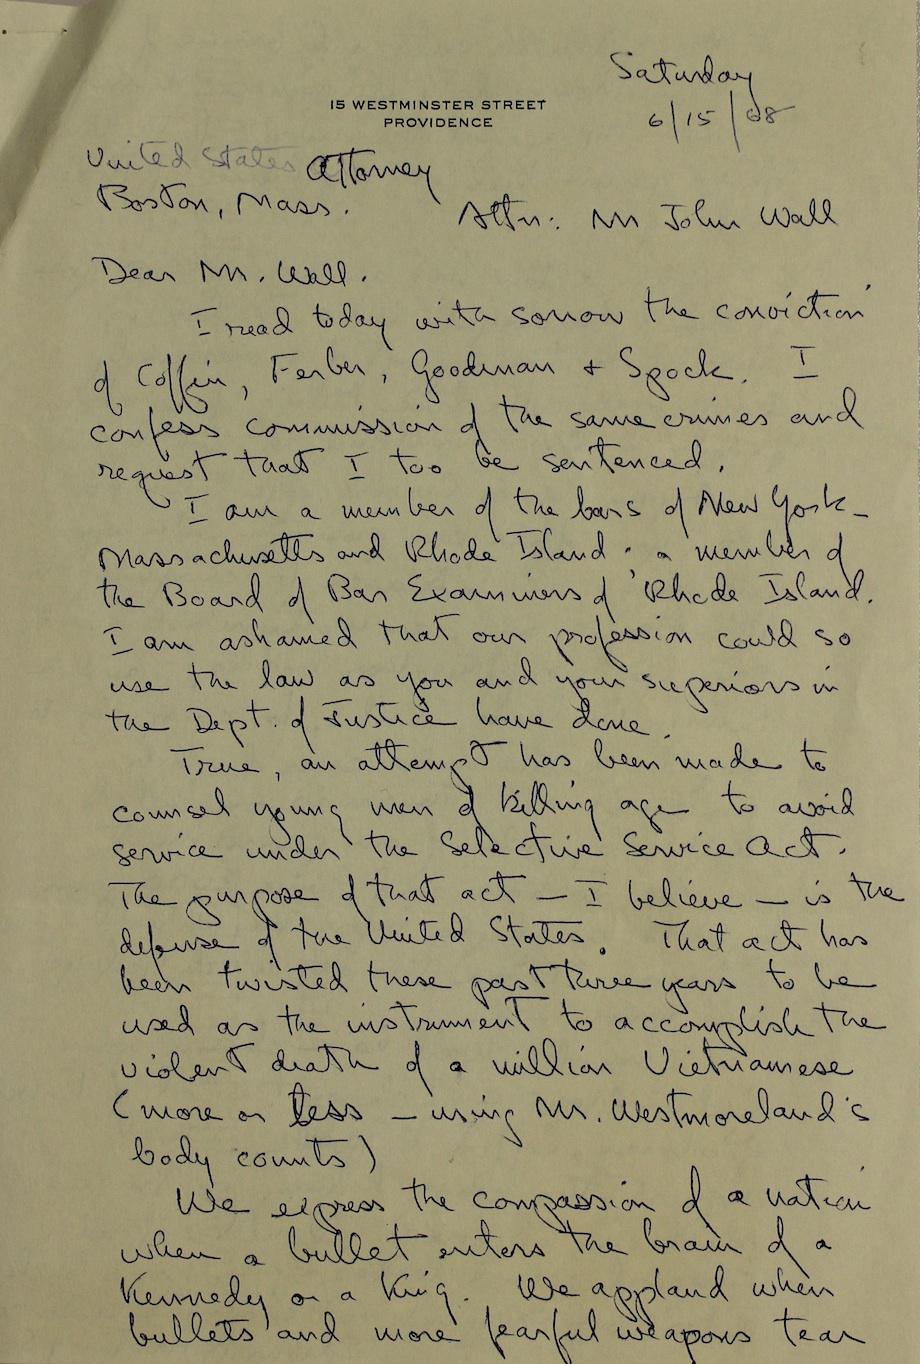 Saturday
15 WESTMINSTER STREET
PROVIDENCE
6/15/68
United States Attorney
Boston, Mass.
Attn: Mr John Wall
Dear Mr. Wall.
I read today with sorrow the conviction
of Coffin, Ferber, Goodman + Spock. I
confess commission of the same crimes and
request that I too be sentenced.
I am a member of the bars of New York -
Massachusetts and Rhode Island; a member of
the Board of Bar Examiners of Rhode Island.
I am ashamed that our profession could so
use the law as you and your superiors in
the Dept. of Justice have done.
True, an attempt has been made to
counsel young men of killing age to avoid
service under the Selective Service Act.
The purpose of that act — I believe — is the
defense of the United States. That act has
been twisted these past three years to be
used as the instrument to accomplish the
violent death of a million Vietnamese
(more or less - using Mr. Westmoreland's
body counts)
We express the compassion of a nation
when a bullet enters the brain of a
Kennedy or a King. We applaud when
bullets and more fearful weapons tear